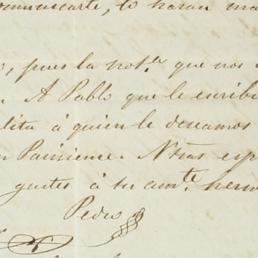 comunicarte, lo harán ma
, pues la not.ª que nos
. A Pablo que le escribi
lita á quien le deseamos
n Parisiense. Ntras esp
gustes á tu am.te herm
Pedro